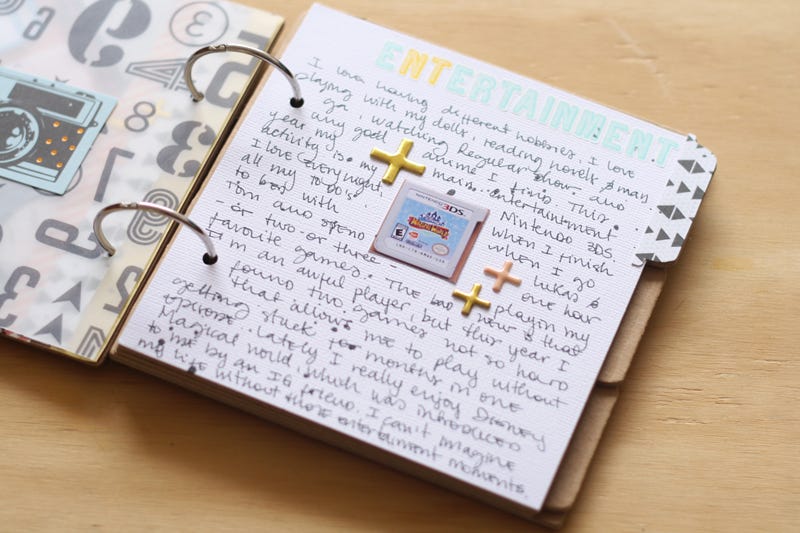 ENTERTAINMENT
I love having different hobbies. I love
playing with my dolls, reading novels & man
ga, watching Regular Show and
any good anime I find. This
year my main entertainment
activity is my Nintendo 3DS.
I love everynight, when I finish
all my to do's, when I go
to bed with Lukas &
Tom and spend one hour
- or two or three - playin my
favorite games. The bad new is that
I'm an awful player, but this year I
found two games not so hard
that allows me to play without
getting stuck for months in one
episode. Lately I really enjoy Disney
Magical World, which was introduced
to me by an IG friend. I can't imagine
my life without those entertainment moments.
NINTENDO 3DS
E